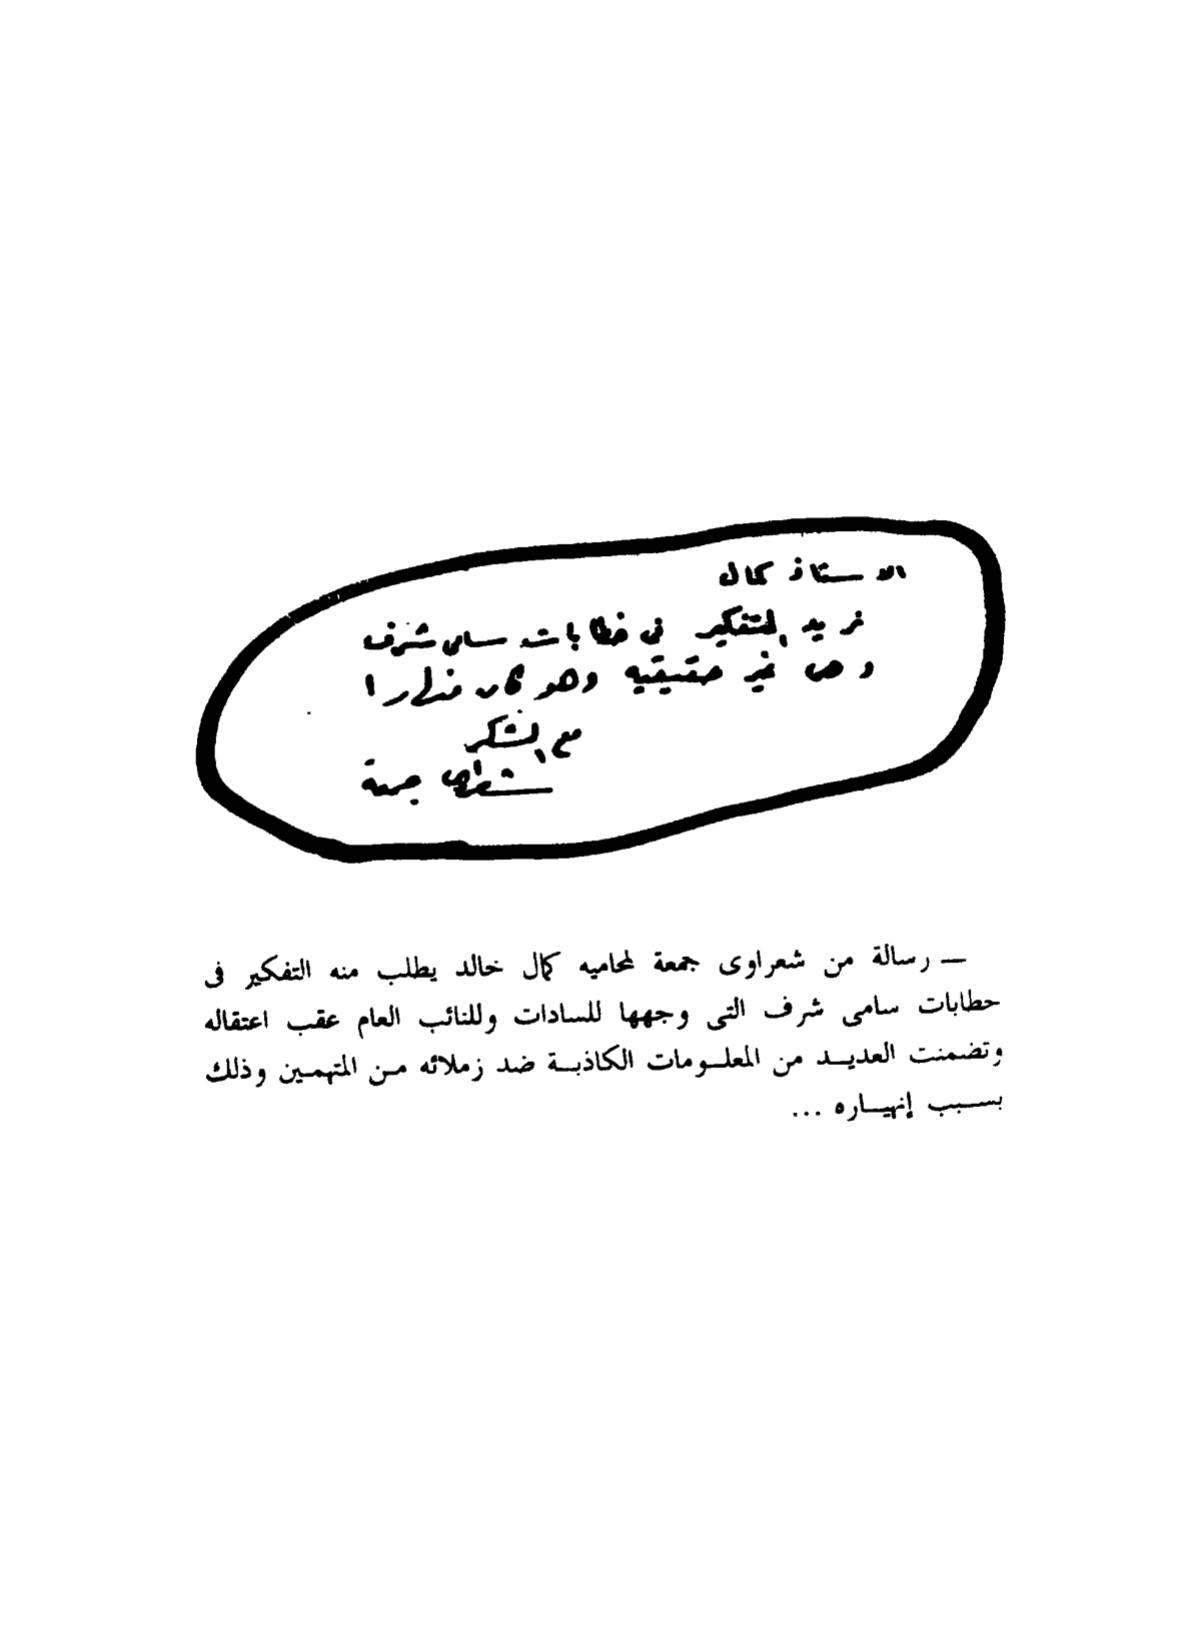 الاستاذ كمال
نريد التفكير فى خطابات سامى شرف
وهى غير حقيقيه وهو كان منهارا
مع الشكر
شعراوى جمعة
— رسالة من شعراوى جمعة لمحاميه كمال خالد يطلب منه التفكير فى
حطابات سامى شرف التى وجهها للسادات وللنائب العام عقب اعتقاله
وتضمنت العديــد من المعلــومات الكاذبــة ضد زملائه مـن المتهمـين وذلك
بســبب إنهيــاره ...